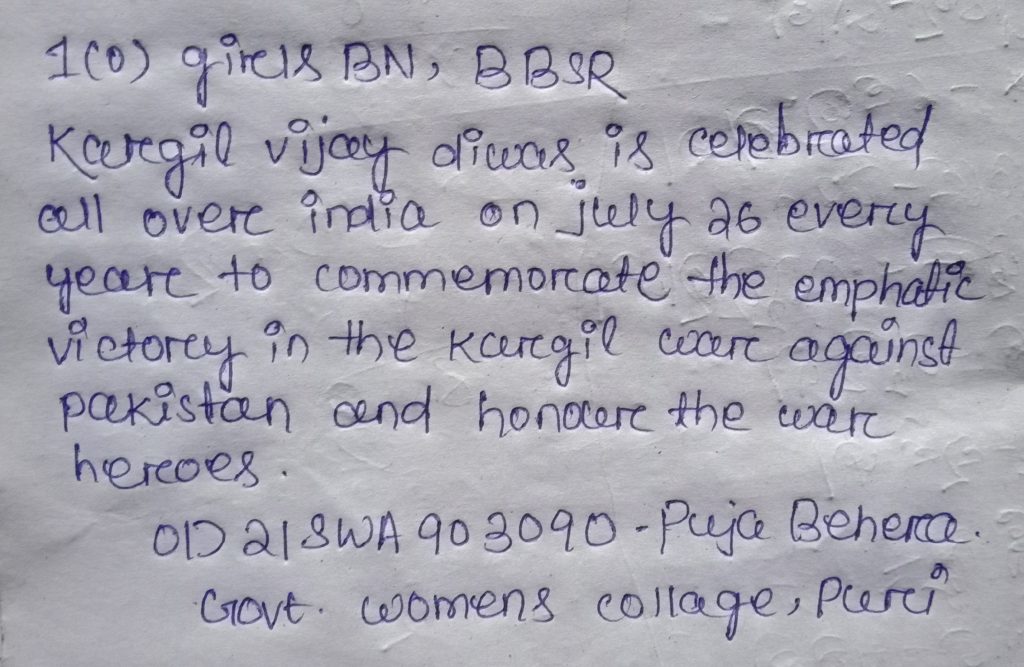 1(0) girls BN, BBSR
Kargil vijay diwas is celebrated
all over india on july 26 every
year to commemorate the emphatic
victory in the Kargil war against
pakistan and honour the war
heroes.
OD 21SWA 903090 - Puja Behera.
Govt. womens collage, Puri